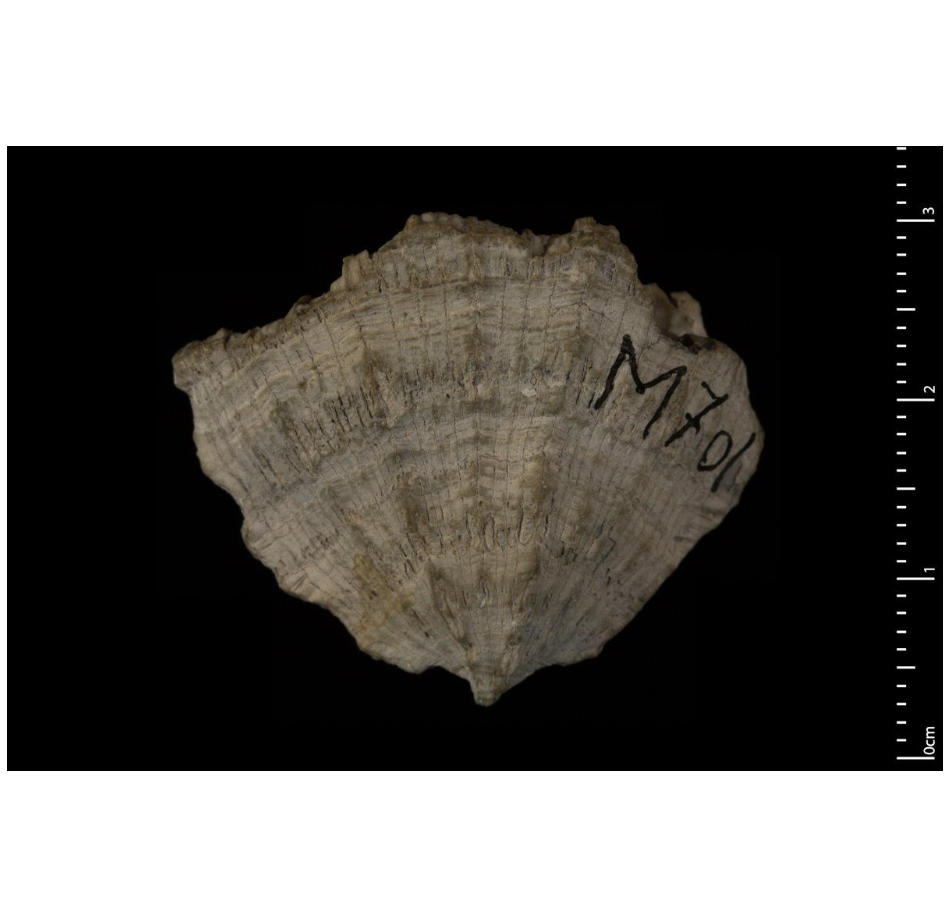 M701
3
2
1
0cm